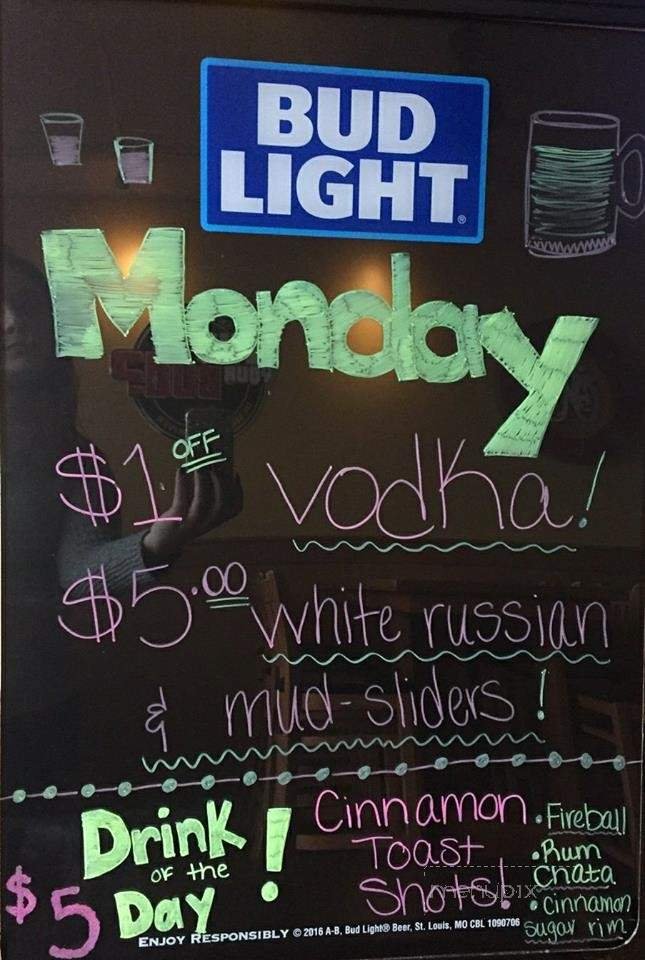 BUD
LIGHT®
Monday
$1 OFF vodka!
$5.00 white russian
& mud-sliders!
Drink
OF the
Day!
$5
Cinnamon
Toast
Shots!
• Fireball
• Rum
Chata
• Cinnamon
sugar rim
menupix
ENJOY RESPONSIBLY © 2016 A-B, Bud Light® Beer, St. Louis, MO CBL 1090706